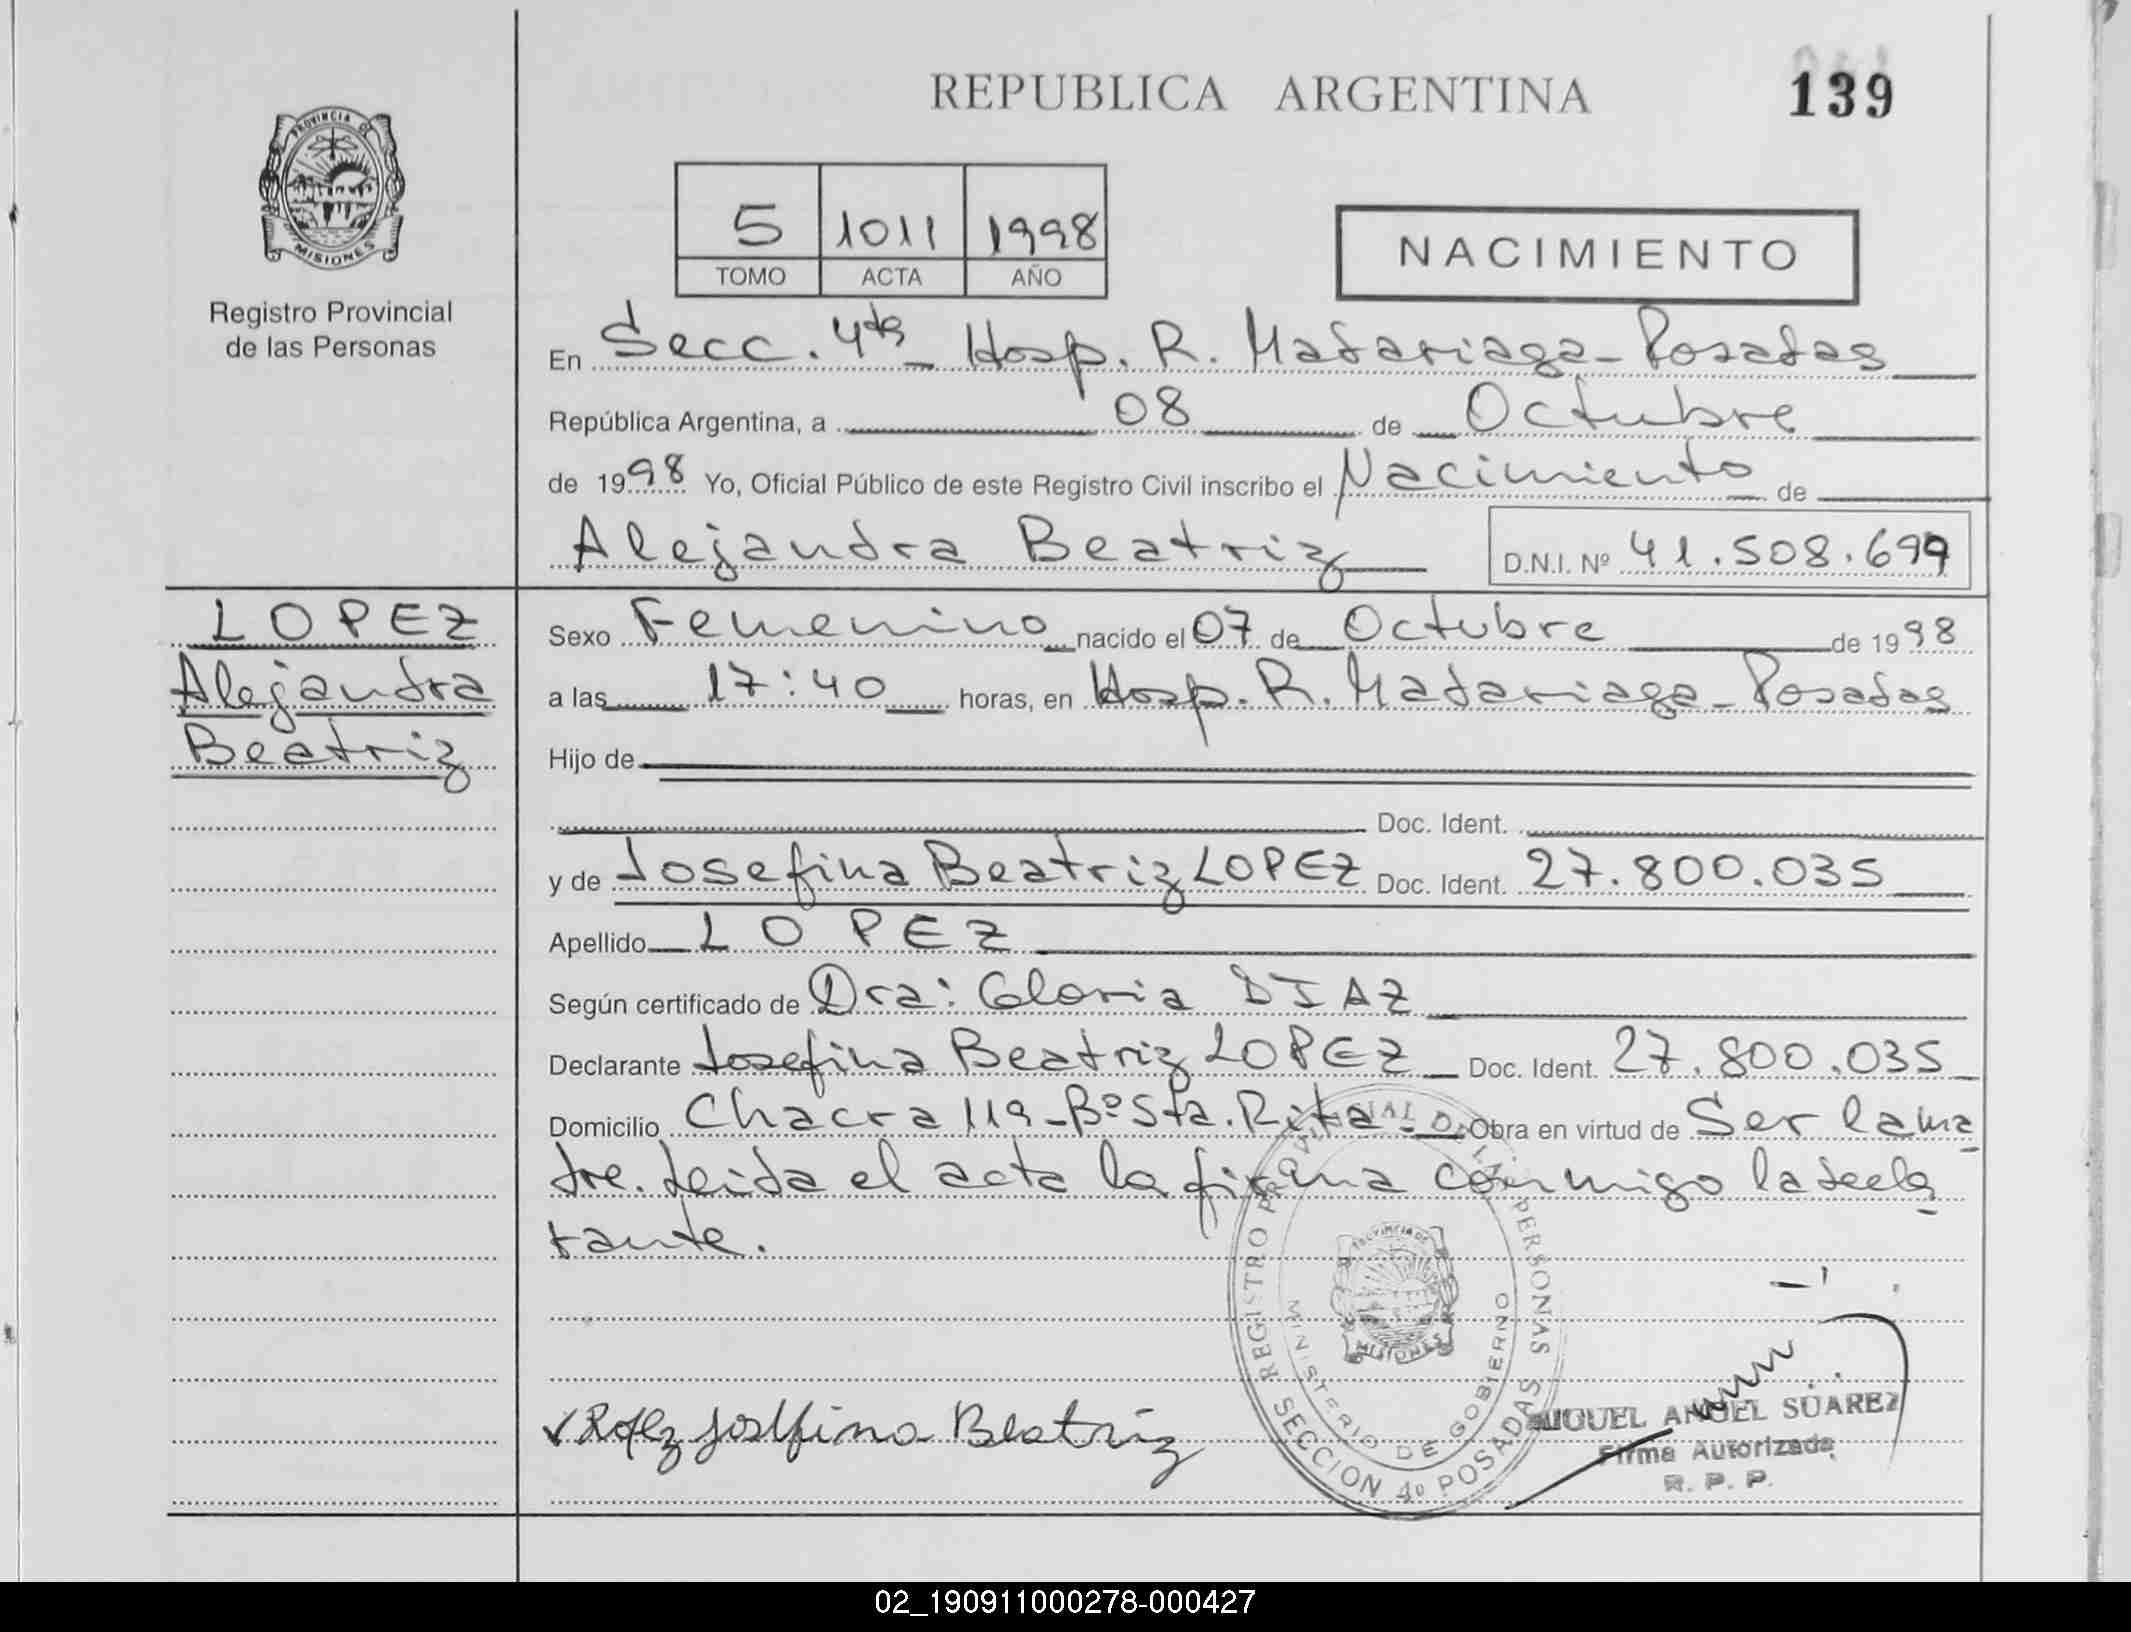 REPUBLICA ARGENTINA
139
PROVINCIA DE
MISIONES
Registro Provincial
de las Personas
5 1011 1998
TOMO ACTA AÑO
NACIMIENTO
En Secc. 4ta Hosp. R. Madariaga - Posadas
República Argentina, a 08 de Octubre
de 1998 Yo, Oficial Público de este Registro Civil inscribo el Nacimiento de
Alejandra Beatriz D.N.I. Nº 41.508.699
LOPEZ
Alejandra
Beatriz
Sexo Femenino nacido el 07 de Octubre de 1998
a las 17:40 horas, en Hosp. R. Madariaga - Posadas
Hijo de
Doc. Ident.
y de Josefina Beatriz LOPEZ Doc. Ident. 27.800.035
Apellido LOPEZ
Según certificado de Dra: Gloria DIAZ
Declarante Josefina Beatriz LOPEZ Doc. Ident. 27.800.035
Domicilio Chacra 119 - Bº Sta. Rita. Obra en virtud de Ser la ma
dre. Leida el acta la firma conmigo la decla
rante.
REGISTRO PROVINCIAL DE LAS PERSONAS
MINISTERIO DE GOBIERNO
MISIONES
SECCION 4º POSADAS
Lopez Josefina Beatriz
MIGUEL ANGEL SUAREZ
Firma Autorizada
R. P. P.
02_190911000278-000427